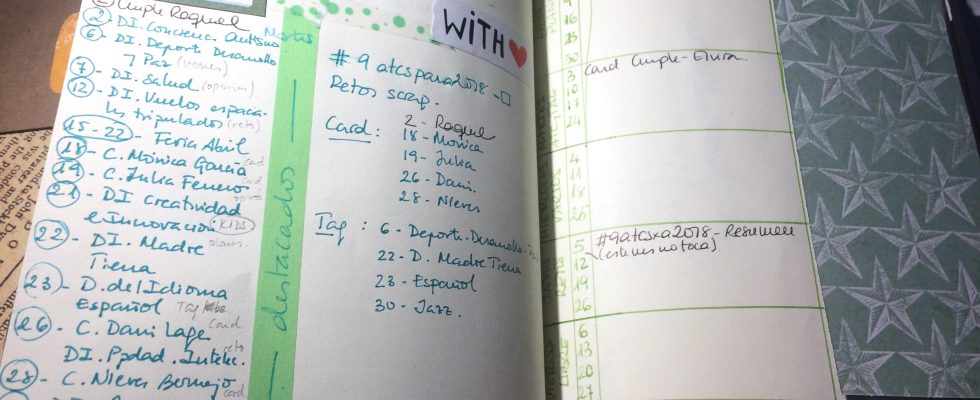 Cumple Raquel
2 - DI. Concienc. Autismo
6 - DI. Deporte Desarrollo
y Paz (viernes)
7 - DI. Salud (opinion)
12 - DI. Vuelos espacia-
les tripulados (reto)
15-22 - Feria Abril
18 - C. Mónica García card
19 - C. Julia Fenero
21 - DI Creatividad
e Innovación. KIDS
22 - DI. Madre
Tierra
23 - D. del Idioma
Español Tag
26 - C. Dani Lage card
DI. Ppdad. Intelec. reto
28 - C. Nieves Bermejo card
Martes
destacados
WiTH
#9atcspara2018 -
Retos scrap.
Card: 2 - Raquel
18 - Mónica
19 - Julia
26 - Dani.
28 - Nieves
Tag: 6 - Deporte. Desarrollo.
22 - D. Madre Tierra
23 - Español
30 - Jazz.
9
16
23
30
3
10
17
24
Card Cumple - Elvira.
4
11
18
25
5
12
19
26
#9atcsxa2018 - Resumen
(este mes no toca)
6
13
20
27